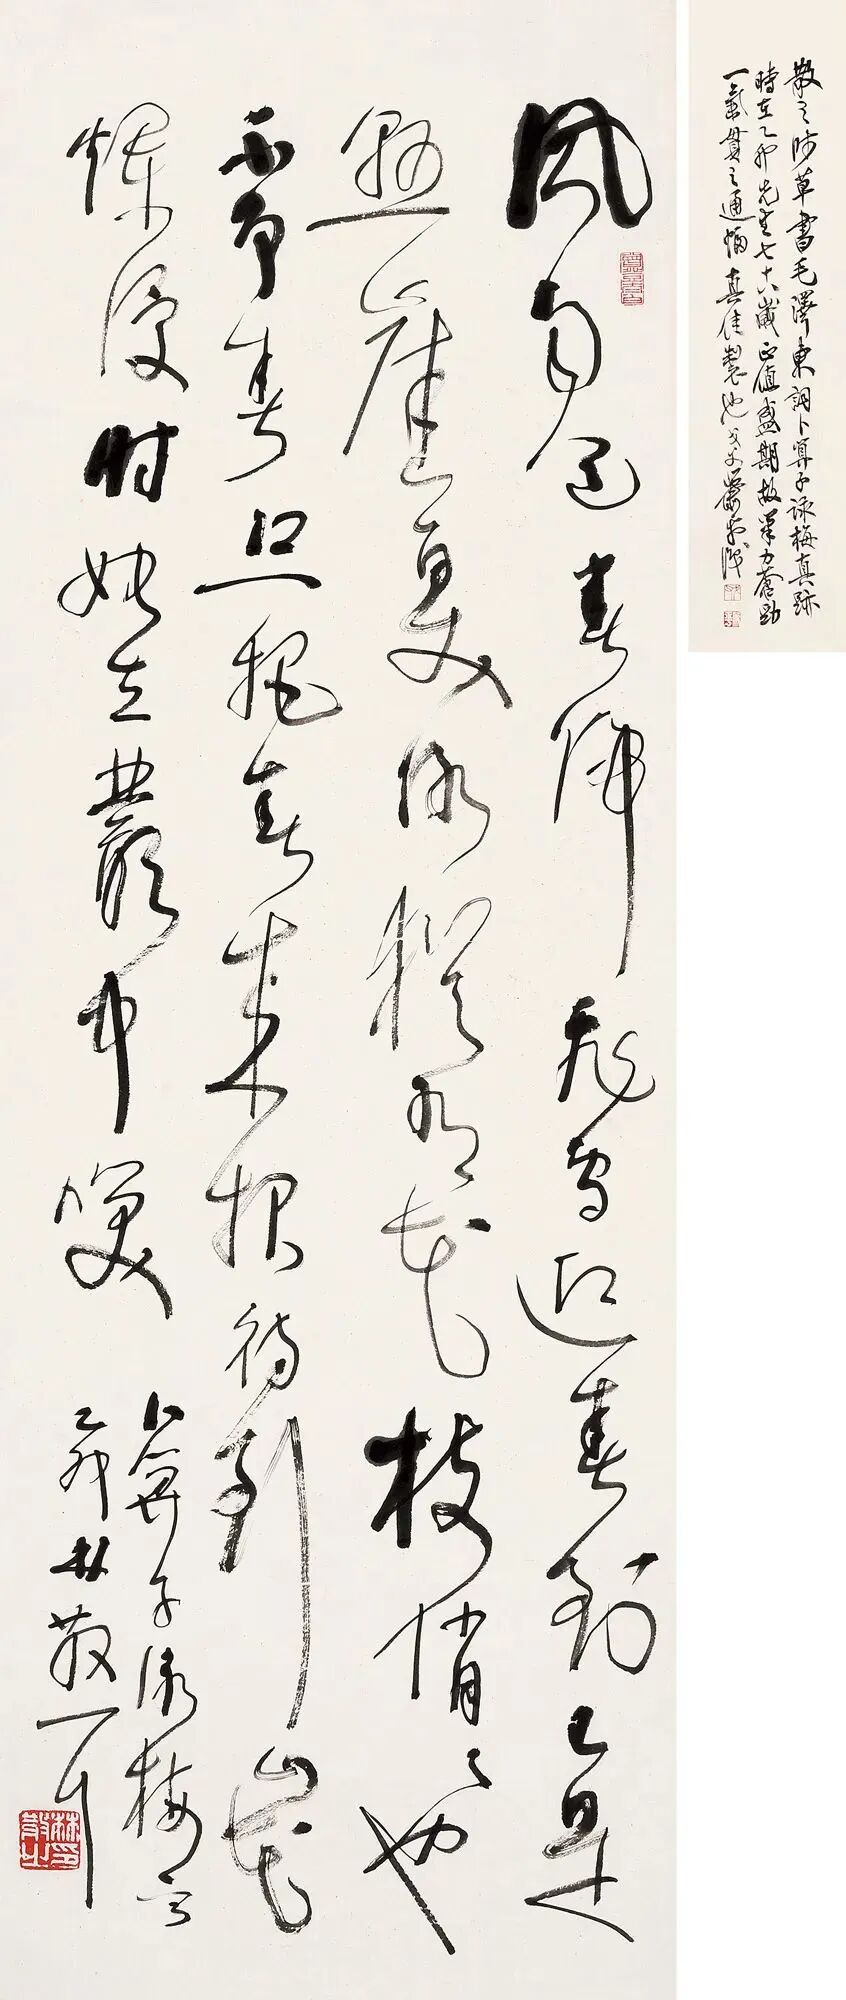 风雨送春归飞雪迎春到已是
悬崖百丈冰犹有花枝俏〻也
不争春只把春来报待到山花
烂漫时她在叢中笑
卜算子咏梅
乙卯林散耳
林散之印
散之師草書毛澤東詞卜算子詠梅真跡
時在乙卯先生七十八歲正值盛期故筆力蒼勁
一氣貫之通幅真佳製也